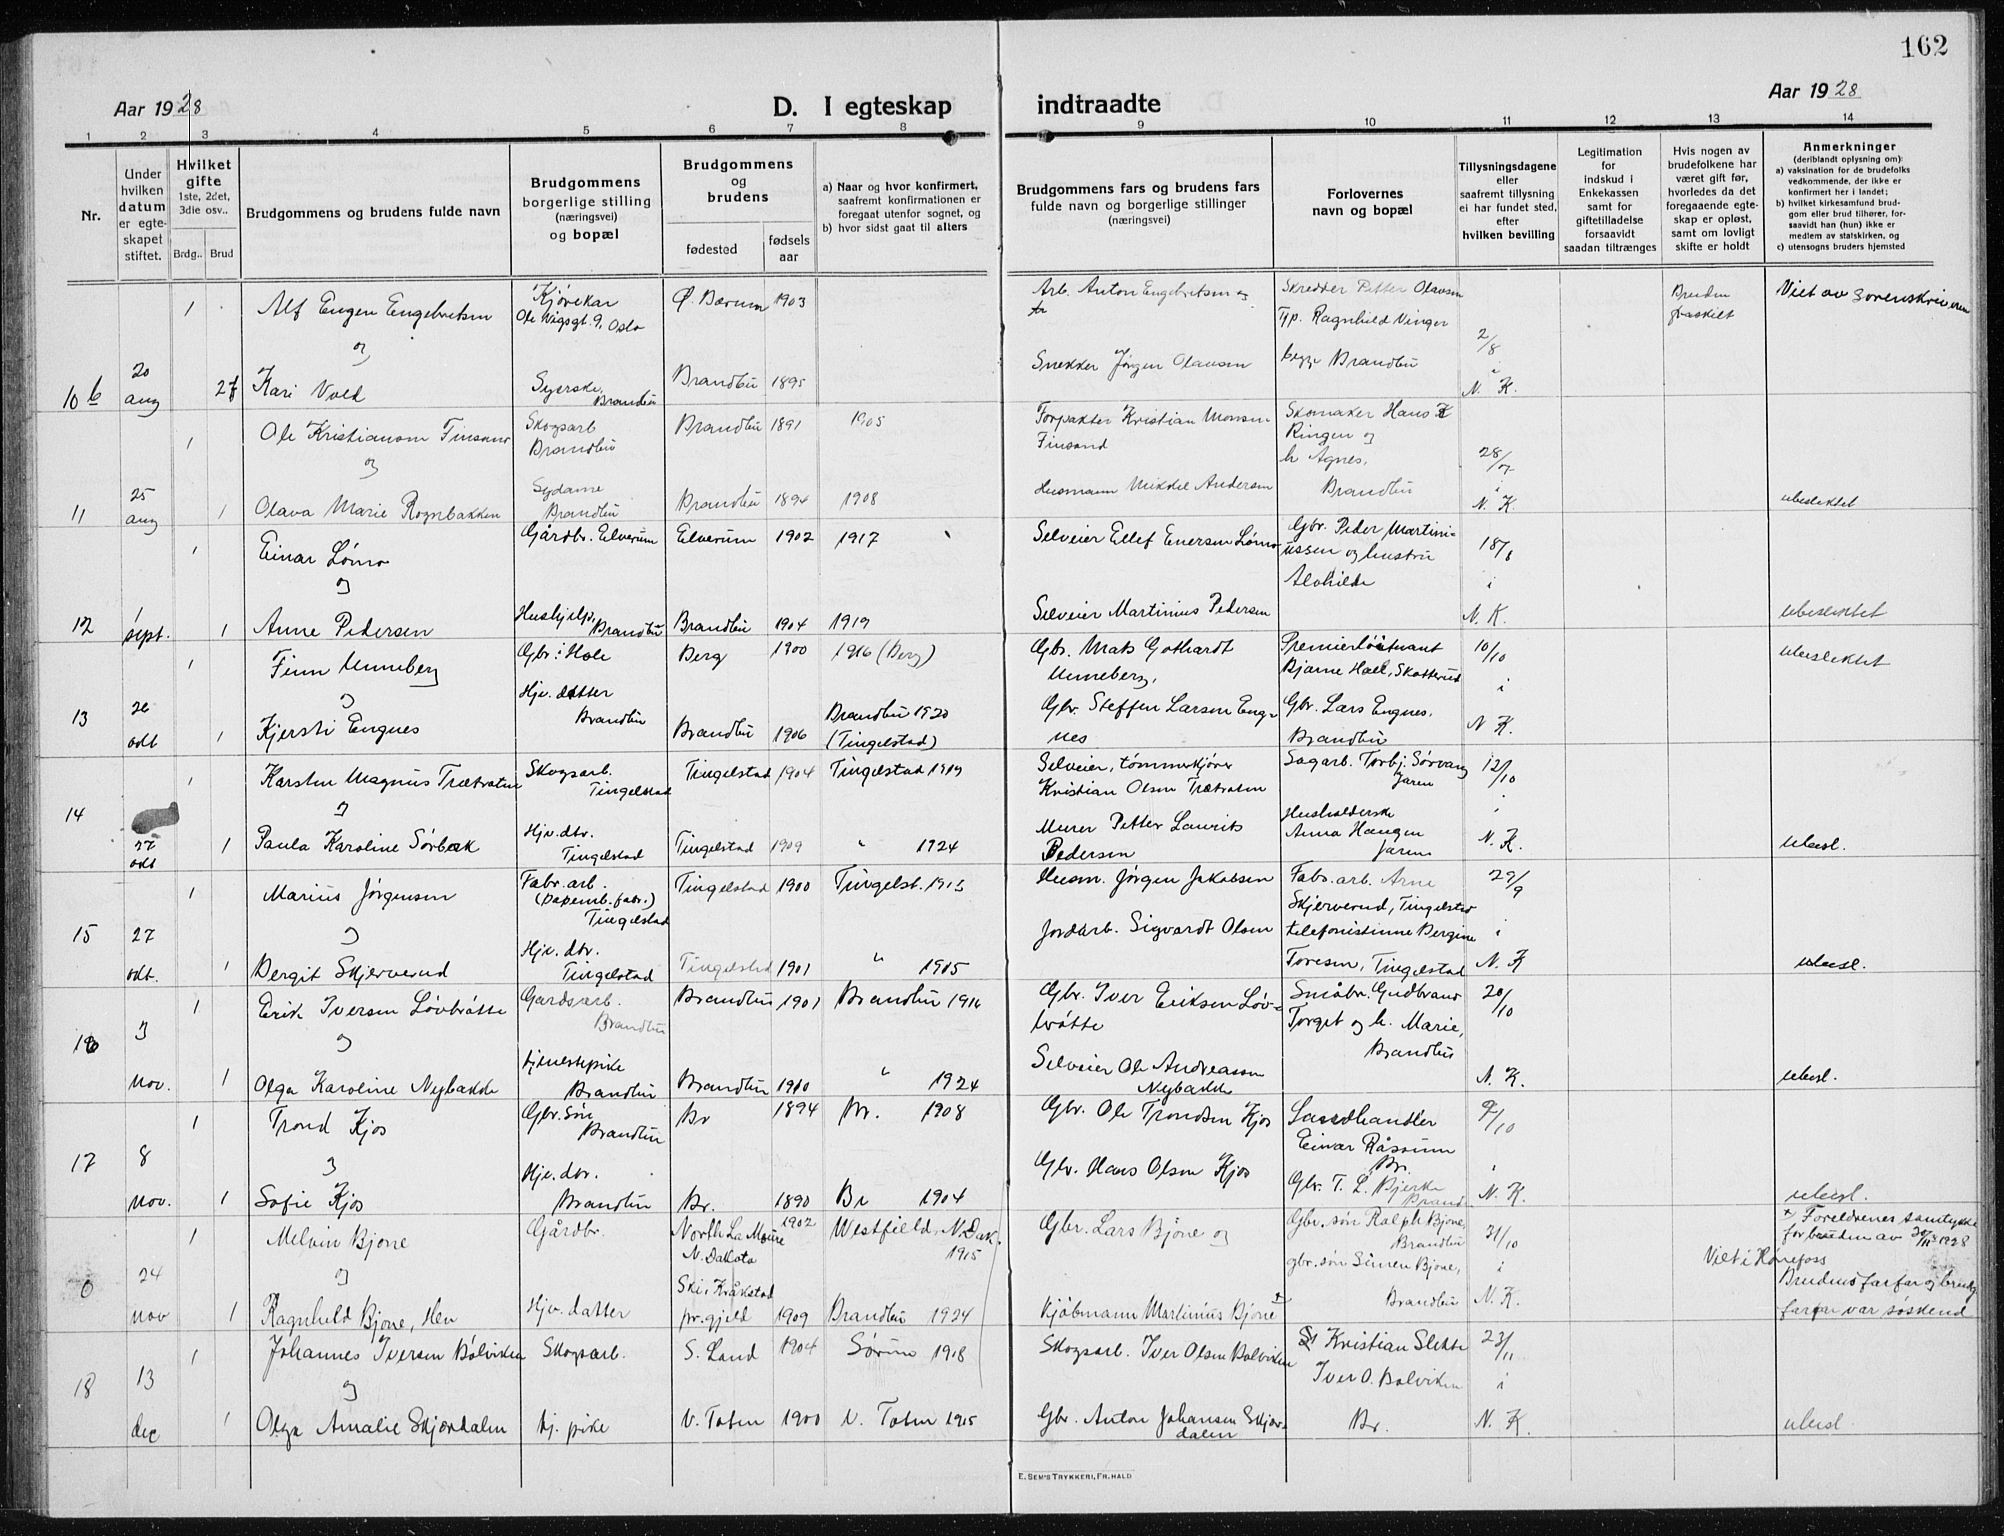 162
Aar 1928
D. I egteskap indtraadte
Aar 1928
1 2 3 4 5 6 7 8 9 10 11 12 13 14
Nr.
Under hvilken datum er egteskapet stiftet.
Hvilket gifte
1ste, 2det, 3die osv..
Brdg.. Brud
Brudgommens og brudens fulde navn
Brudgommens borgerlige stilling
(næringsvei)
og bopæl
Brudgommens og brudens
fødested
fødselsaar
a) Naar og hvor konfirmert, saafremt konfirmationen er foregaat utenfor sognet, og
b) hvor sidst gaat til alters
Brudgommens fars og brudens fars
fulde navn og borgerlige stillinger
(næringsvei)
Forlovernes
navn og bopæl
Tillysningsdagene
eller
saafremt tillysning
ei har fundet sted,
efter
hvilken bevilling
Legitimation
for
indskud i
Enkekassen
samt for
giftetilladelse
forsaavidt
saadan tiltrænges
Hvis nogen av
brudefolkene har
været gift før,
hvorledes da det
foregaaende egteskap er opløst,
samt om lovligt
skifte er holdt
Anmerkninger
(deriblandt oplysning om):
a) vaksination for de brudefolks vedkommende, der ikke er konfirmert her i landet;
b) hvilket kirkesamfund brudgom eller brud tilhører, forsaavidt han (hun) ikke er medlem av statskirken, og
c) utensogns bruders hjemsted
1 Alf Eugen Engebretsen Ole Vigsgt. 9, Oslo Ø. Bærum 1903 Arb. Anton Engebretsen Skredder Petter Olavsen Bruden fraskilt Viet av sorenskriveren
og Ragnhild Vinger 2/8
10 b 20 aug 2 Kari Vold Syerske, Brandbu Brandbu 1895 Snekker Jørgen Olavsen begge Brandbu i N. K.
1 Ole Kristiansen Finsand Skogsarb Brandbu Brandbu 1891 1905 Forpakter Kristian Monsen Finsand Skomaker Hans K Ringen og
og h Agnes, 28/7
11 25 aug 1 Olava Marie Rognbakken Sydame Brandbu Brandbu 1894 1908 Husmann Mikkel Andersen Brandbu i N. K. ubeslektet
1 Einar Lømo Gårdbr. Elverum Elverum 1902 1917 Selveier Ellef Enersen Lømo Gbr. Peder Martiniussen og hustru 18/8
og Alvhilde i
12 1 sept. 1 Anne Pedersen Hushjelp, Brandbu Brandbu 1904 1919 Selveier Martinius Pedersen N. K. ubeslektet
1 Finn Unneberg Gbr. i Hole Berg 1900 1916 (Berg) Gbr. Mats Gothardt Unneberg, Premierløitnant Bjarne Hoel, Skotterud 10/10 ubeslektet
og i
13 20 okt 1 Kjersti Engnes Hjv. datter Brandbu Brandbu 1906 Brandbu 1920 (Tingelstad) Gbr. Steffen Larsen Engnes Gbr. Lars Engnes, Brandbu N. K.
1 Karsten Magnus Trætraten Skogsarb. Tingelstad Tingelstad 1904 Tingelstad 1919 Selveier, tømmerkjører Kristian Olsen Trætraten Sagarb. Torbj. Sørvang Jaren 12/10
og i
14 27 okt 1 Paula Karoline Sørbak Hjv. dtr. Tingelstad Tingelstad 1909 " 1924 Murer Petter Laurits Pedersen Husholderske Anna Haugen Jaren N. K. ubesl.
1 Marius Jørgensen Fabr. arb. Tingelstad Tingelstad 1900 Tingelst. 1915 Husm. Jørgen Jakobsen Fabr. arb. Arne Skjerverud, Tingelstad 29/9
og i
15 27 okt. 1 Bergit Skjerverud Hjv. dtr. Tingelstad Tingelstad 1901 " 1915 Jordarb. Sigvardt Olsen telefonistinne Bergine Foresen, Tingelstad N. K ubesl.
1 Erik Iversen Løvbråtte Gardsarb. Brandbu Brandbu 1901 Brandbu 1916 Gbr. Iver Eriksen Løvbråtte Småbr. Gudbrand Torget og h. Marie, Brandbu 20/10
og
16 3 nov. 1 Olga Karoline Nybakke tjenestepike Brandbu Brandbu 1910 " 1924 Selveier Ole Andreassen Nybakke N. K. ubesl.
1 Trond Kjos Gbr. søn Brandbu Br 1894 Br. 1908 Gbr. Ole Trondsen Kjos Einar Råssum Br. 9/10
og i
17 8 nov. 1 Sofie Kjos Hjv. dtr. Brandbu Br. 1890 Br 1904 Gbr. Hans Olsen Kjos Gbr. T. L. Bjerke Brand. N. K. ubesl.
1 Melvin Bjone Gårdbr. North La Moure N. Dakota 1902 Westfield, N. Dak. 1915 Gbr. Lars Bjone og Gbr. søn Ralph Bjone, Brandbu 31/10 + Foreldrenes samtykke for bruden av 20/11 1928
og gbr. søn Simen Bjone, i Viet i Hønefoss
0 24 nov 1 Ragnhild Bjone, Hen Hjv. datter Ski i Kråkstad pr.gjeld 1909 Brandbu 1924 kjøbmann Martinius Bjone + Brandbu N. K. Brudens farfar og brudg farfar var søskend
1 Johannes Iversen Bolviken Skogsarb. S. Land 1904 Sørum 1918 Skogsarb. Iver Olsen Bolviken Kristian Slette 23/11
og Iver O. Bolviken i
18 13 dec 1 Olga Amalie Skjerdalen tj. pike V. Toten 1900 V. Toten 1915 Gbr. Anton Johansen Skjerdalen Br. N. K. ubesl.
E. SEM'S TRYKKERI, FR.HALD